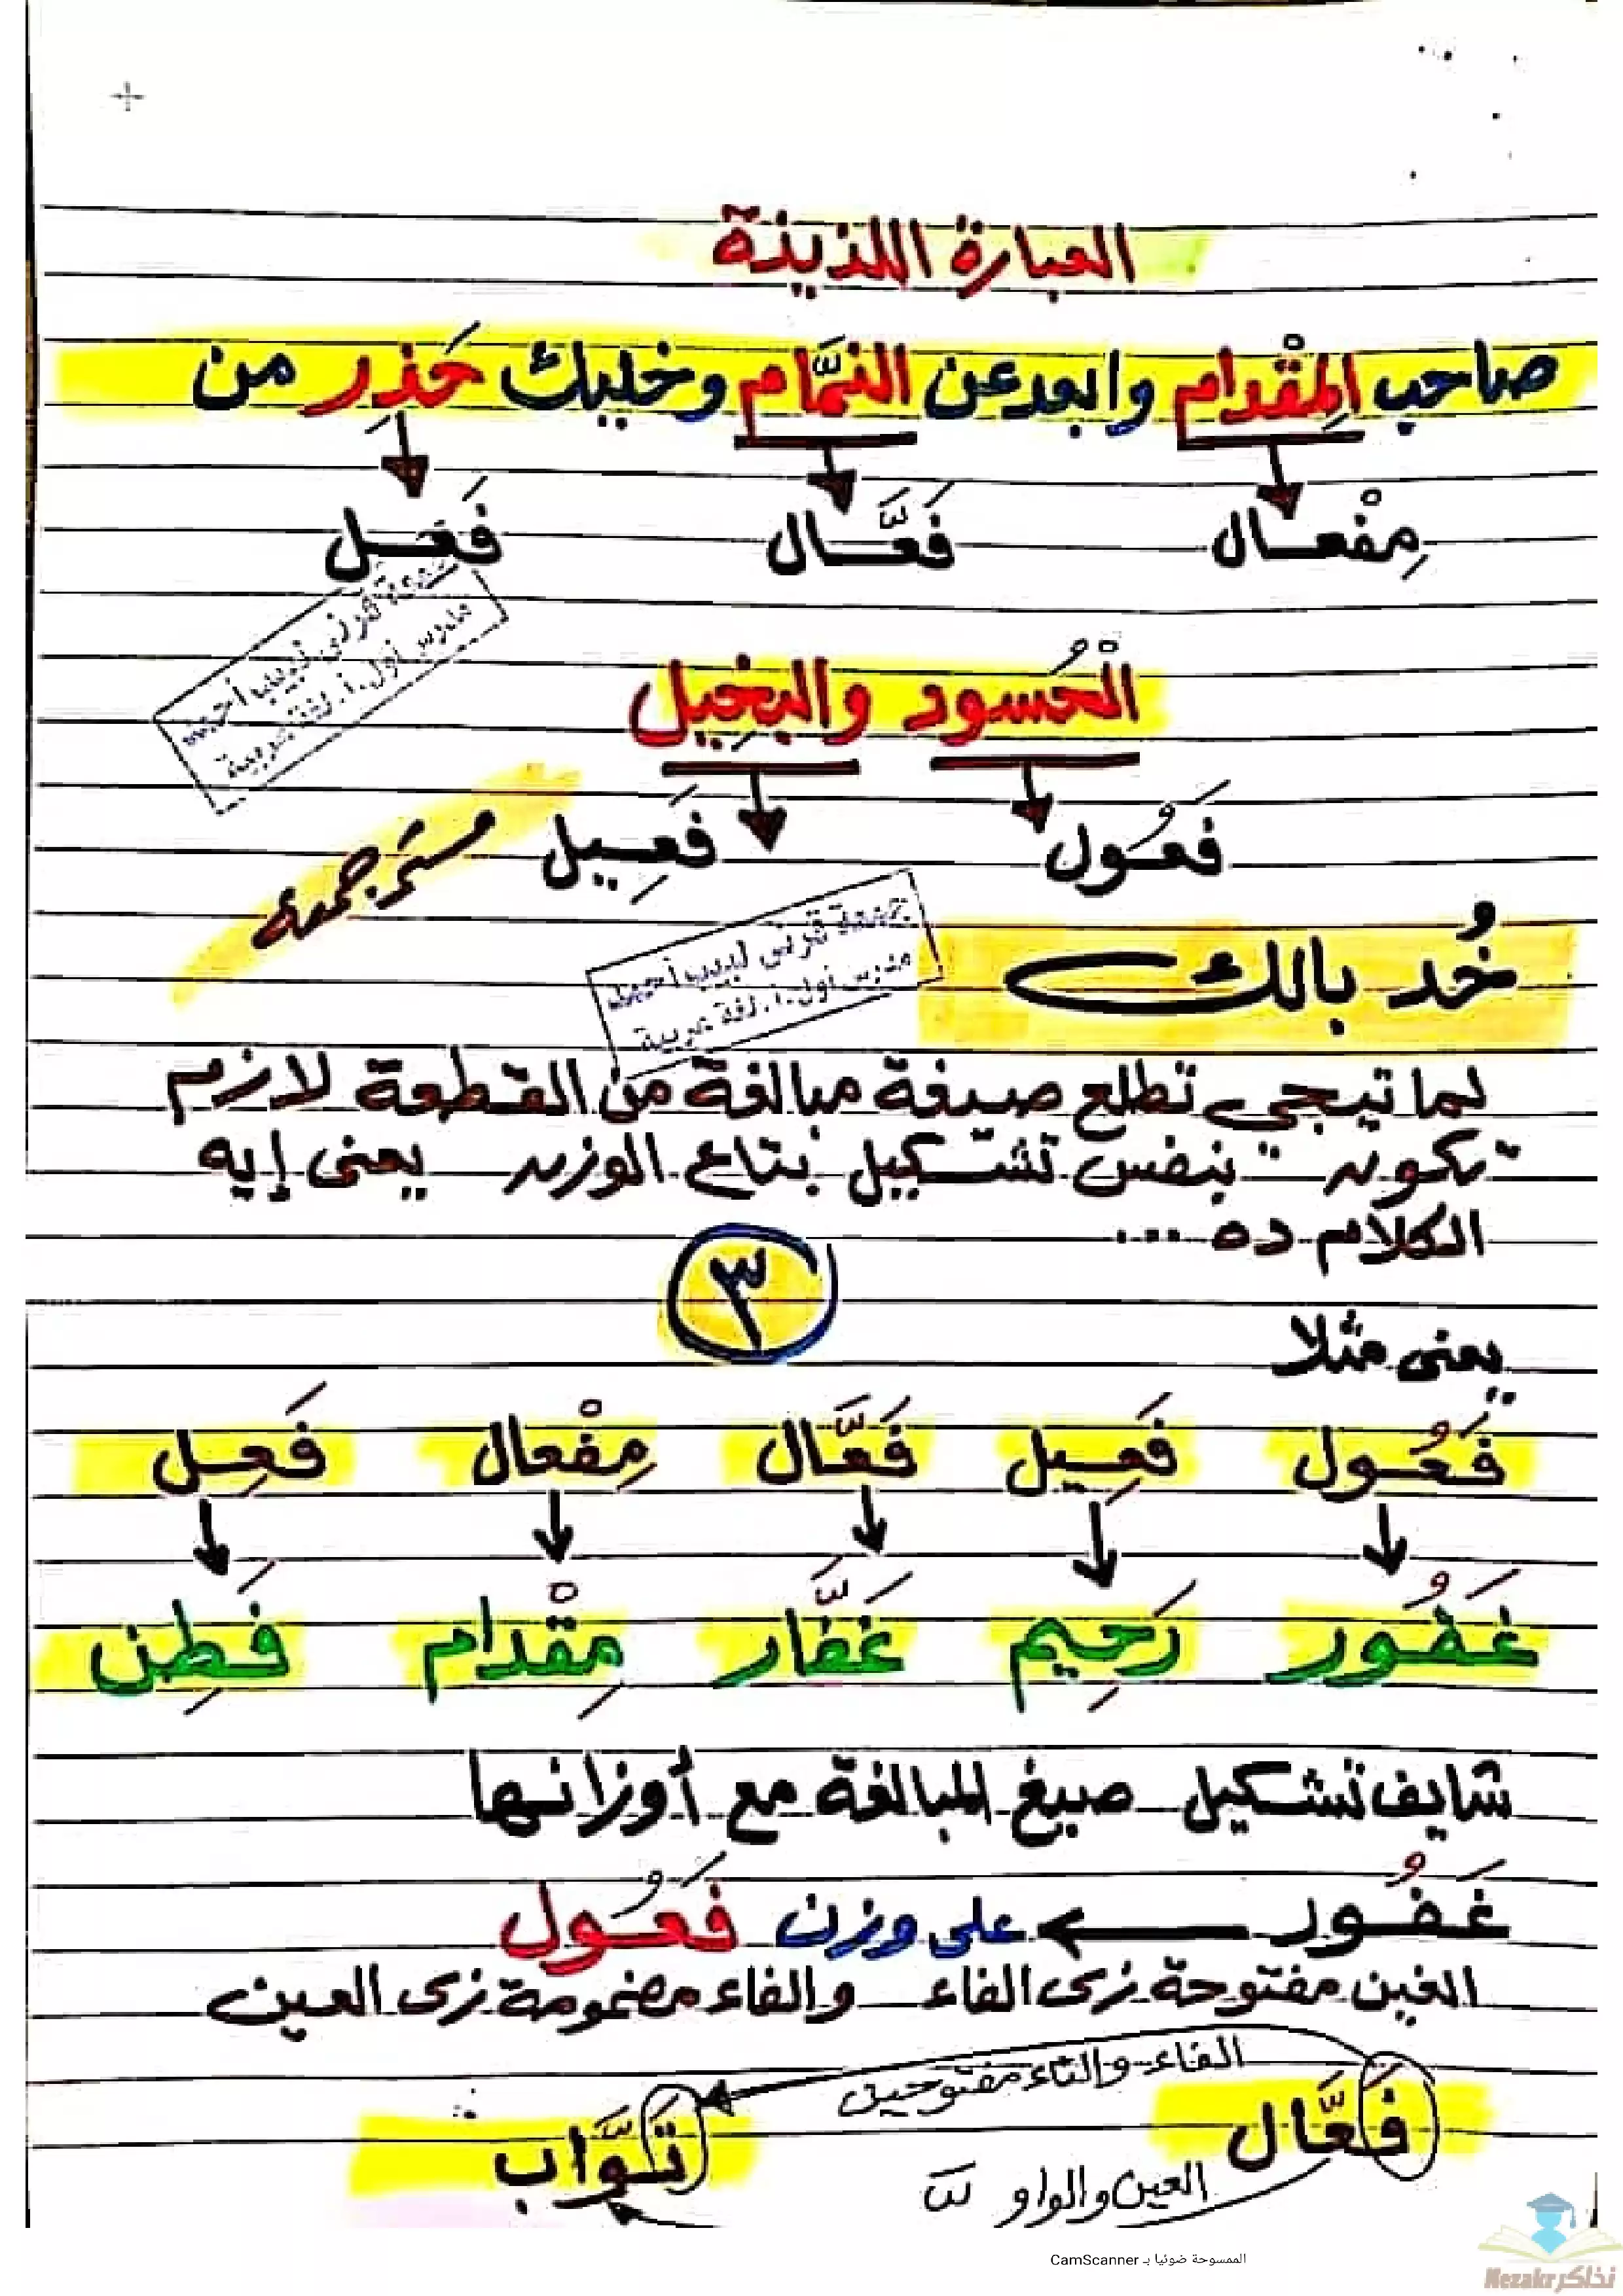 العبارة اللذيذة
صاحب المِقْدام وابعد عن النمَّام وخليك حَذِر من
مِفْعال فَعَّال فَعِل
الْحُسود والبخِيل
فَعُول فَعِيل
مستر جمعه
جمعة قرني لبيب أحمد
مدرس أول .أ. لغة عربية
خُد بالك
جمعة قرني لبيب أحمد
مدرس أول .أ. لغة عربية
لما تيجي تطلع صيغة مبالغة من القطعة لازم
تكون بنفس تشكيل بتاع الوزن يعنى إيه
الكلام ده ...
٣
يعنى مثلا
فَعُول فَعِيل فَعَّال مِفْعال فَعِل
غَفُور رَحِيم غَفَّار مِقْدام فَطِن
شايف تشكيل صيغ المبالغة مع أوزانها
غَفُور على وزن فَعُول
الغين مفتوحة زى الفاء والفاء مضمومة زى العين
الفاء والتاء مفتوحين
فَعَّال تَوَّاب
العين والواو
الممسوحة ضوئيا بـ CamScanner
نذاكر Nezakr